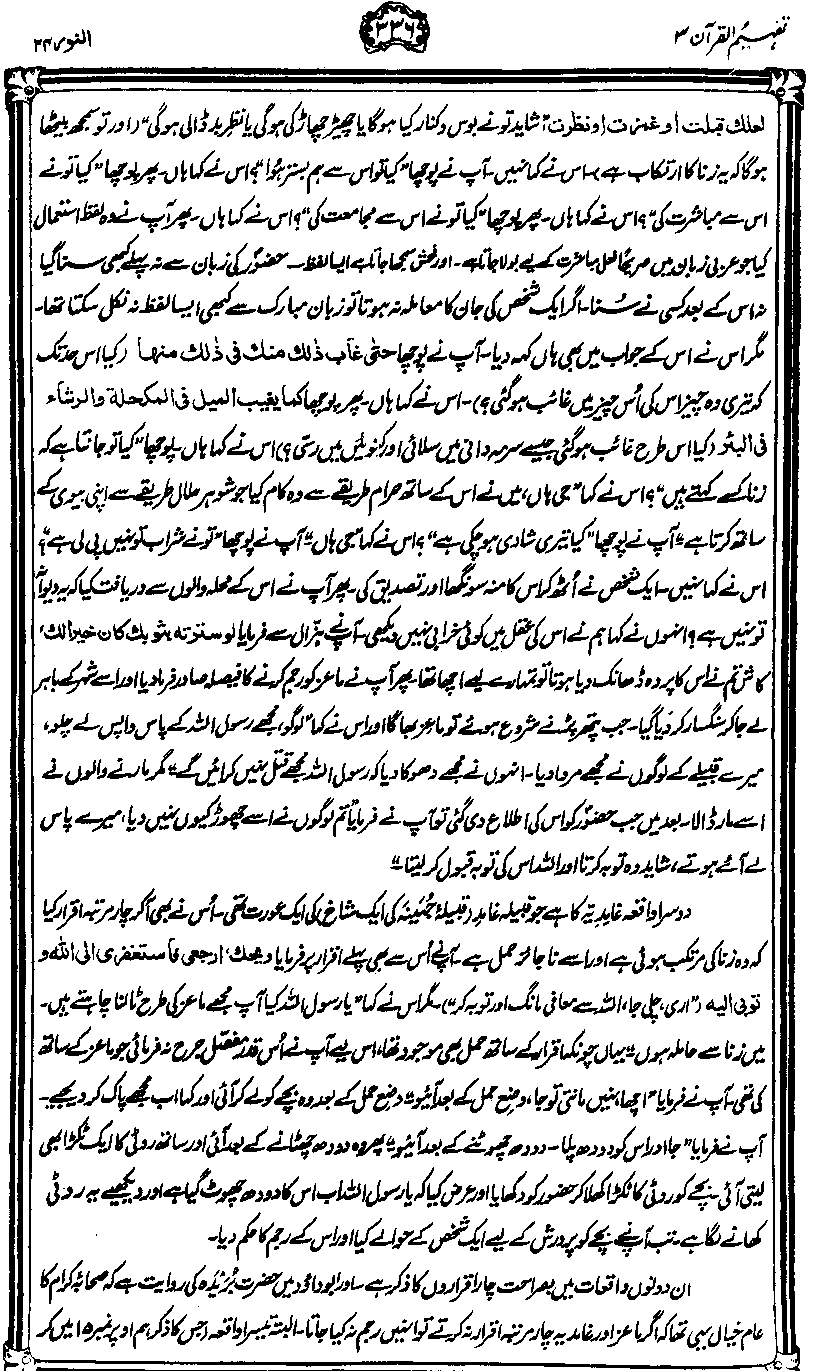 تفہیم القرآن ۳
۳۳۶
النور ۲۴
لعلك قبلت او غمزت او نظرت؟ شاید تو نے بوس و کنار کیا ہوگا یا چھیڑ چھاڑ کی ہوگی یا نظرِ بد ڈالی ہوگی" (اور تو سمجھ بیٹھا
ہوگا کہ یہ زنا کا ارتکاب ہے)۔ اس نے کہا نہیں۔ آپ نے پوچھا "کیا تو اس سے ہم بستر ہوا"؟ اس نے کہا ہاں۔ پھر پوچھا "کیا تو نے
اس سے مباشرت کی"؟ اس نے کہا ہاں۔ پھر پوچھا "کیا تو نے اس سے مجامعت کی"؟ اس نے کہا ہاں۔ پھر آپ نے وہ لفظ استعمال
کیا جو عربی زبان میں صریحاً فعل مباشرت کے لیے بولا جاتا ہے۔ اور فحش سمجھا جاتا ہے ایسا لفظ۔ حضورؐ کی زبان سے نہ پہلے کبھی سنا گیا
نہ اس کے بعد کسی نے سُنا۔ اگر ایک شخص کی جان کا معاملہ نہ ہوتا تو زبان مبارک سے کبھی ایسا لفظ نہ نکل سکتا تھا۔
مگر اس نے اس کے جواب میں بھی ہاں کہہ دیا۔ آپ نے پوچھا حتٰی غاب ذٰلك منك فی ذٰلك منها (کیا اس حد تک
کہ تیری وہ چیز اس کی اُس چیز میں غائب ہو گئی؟)۔ اس نے کہا ہاں۔ پھر پوچھا کما یغیب المیل فی المکحلة والرشاء
فی البئر (کیا اس طرح غائب ہو گئی جیسے سرمہ دانی میں سلائی اور کنوئیں میں رسی؟) اس نے کہا ہاں۔ پوچھا "کیا تو جانتا ہے کہ
زنا کسے کہتے ہیں"؟ اس نے کہا "جی ہاں، میں نے اس کے ساتھ حرام طریقے سے وہ کام کیا جو شوہر حلال طریقے سے اپنی بیوی کے
ساتھ کرتا ہے"۔ آپ نے پوچھا "کیا تیری شادی ہو چکی ہے"؟ اس نے کہا "جی ہاں"۔ آپ نے پوچھا "تو نے شراب تو نہیں پی لی ہے"؟
اس نے کہا نہیں۔ ایک شخص نے اُٹھ کر اس کا منہ سونگھا اور تصدیق کی۔ پھر آپ نے اس کے محلہ والوں سے دریافت کیا کہ یہ دیوانہ
تو نہیں ہے؟ انہوں نے کہا ہم نے اس کی عقل میں کوئی خرابی نہیں دیکھی۔ آپنے ہزّال سے فرمایا لو سترته بثوبك كان خیرا لك،
کاش تم نے اس کا پردہ ڈھانک دیا ہوتا تو تمہارے لیے اچھا تھا۔ پھر آپ نے ماعز کو رجم کرنے کا فیصلہ صادر فرما دیا اور اسے شہر کے باہر
لے جا کر سنگسار کر دیا گیا۔ جب پتھر پڑنے شروع ہوئے تو ماعز بھاگا اور اس نے کہا "لوگو، مجھے رسول اللہ کے پاس واپس لے چلو،
میرے قبیلے کے لوگوں نے مجھے مروا دیا۔ انہوں نے مجھے دھوکا دیا کہ رسول اللہ مجھے قتل نہیں کرائیں گے"۔ مگر مارنے والوں نے
اسے مار ڈالا۔ بعد میں جب حضورؐ کو اس کی اطلاع دی گئی تو آپ نے فرمایا "تم لوگوں نے اسے چھوڑ کیوں نہیں دیا، میرے پاس
لے آئے ہوتے، شاید وہ توبہ کرتا اور اللہ اس کی توبہ قبول کر لیتا"۔
دوسرا واقعہ غامدیہ کا ہے جو قبیلہ غامد (قبیلۂ جُہَینہ کی ایک شاخ) کی ایک عورت تھی۔ اُس نے بھی آ کر چار مرتبہ اقرار کیا
کہ وہ زنا کی مرتکب ہوئی ہے اور اسے ناجائز حمل ہے۔ آپنے اُس سے بھی پہلے اقرار پر فرمایا ویحك، ارجعی فاستغفری الی اللہ و
توبی الیه ("اری، چلی جا، اللہ سے معافی مانگ اور توبہ کر")۔ مگر اس نے کہا "یا رسول اللہ کیا آپ مجھے ماعز کی طرح ٹالنا چاہتے ہیں۔
میں زنا سے حاملہ ہوں"۔ یہاں چونکہ اقرار کے ساتھ حمل بھی موجود تھا، اس لیے آپ نے اُس قدر مفصّل جرح نہ فرمائی جو ماعز کے ساتھ
کی تھی۔ آپ نے فرمایا "اچھا، نہیں مانتی تو جا، وضعِ حمل کے بعد آئیو"۔ وضعِ حمل کے بعد وہ بچے کو لے کر آئی اور کہا اب مجھے پاک کر دیجیے۔
آپ نے فرمایا "جا اور اس کو دودھ پلا۔ دودھ چھوٹنے کے بعد آئیو"۔ پھر وہ دودھ چھٹانے کے بعد آئی اور ساتھ روٹی کا ایک ٹکڑا بھی
لیتی آئی۔ بچے کو روٹی کا ٹکڑا کھلا کر حضور کو دکھایا اور عرض کیا کہ یا رسول اللہ اب اس کا دودھ چھوٹ گیا ہے اور دیکھیے یہ روٹی
کھانے لگا ہے۔ تب آپنے بچے کو پرورش کے لیے ایک شخص کے حوالے کیا اور اس کے رجم کا حکم دیا۔
ان دونوں واقعات میں بصراحت چار اقراروں کا ذکر ہے۔ اور ابوداؤد میں حضرت بُرَیدہ کی روایت ہے کہ صحابۂ کرام کا
عام خیال یہی تھا کہ اگر ماعز اور غامدیہ چار مرتبہ اقرار نہ کرتے تو انہیں رجم نہ کیا جاتا۔ البتہ تیسرا واقعہ (جس کا ذکر ہم اوپر نمبر ۱۵ میں کر